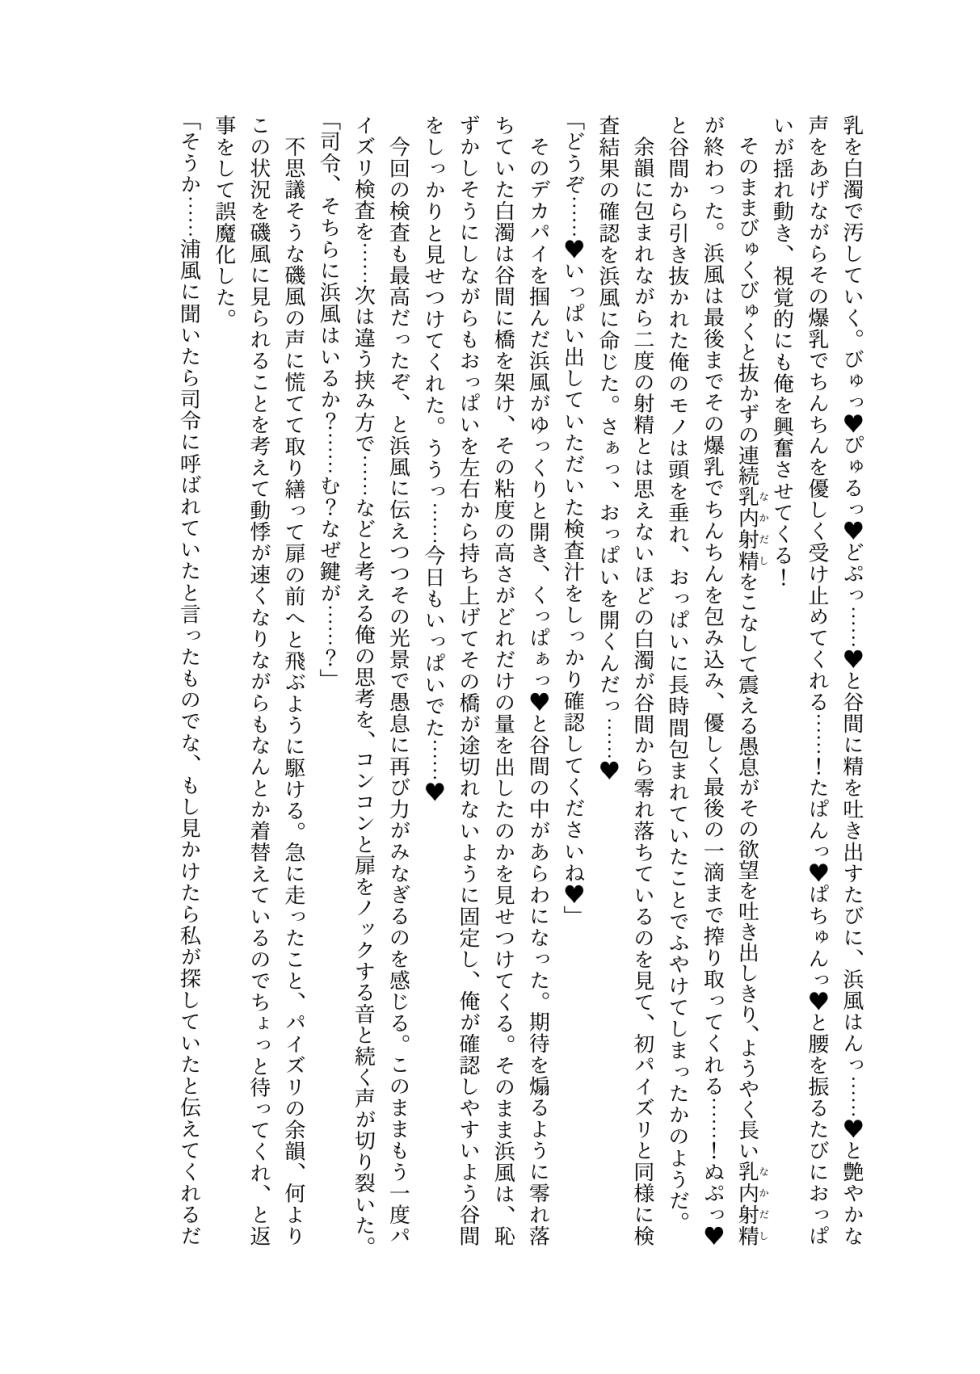 乳を白濁で汚していく。びゅっ♥ぴゅるっ♥どぷっ……♥と谷間に精を吐き出すたびに、浜風はんっ……♥と艶やかな
声をあげながらその爆乳でちんちんを優しく受け止めてくれる……！たぱんっ♥ぱちゅんっ♥と腰を振るたびにおっぱ
いが揺れ動き、視覚的にも俺を興奮させてくる！
そのままびゅくびゅくと抜かずの連続乳内射精なかだしをこなして震える愚息がその欲望を吐き出しきり、ようやく長い乳内射精なかだし
が終わった。浜風は最後までその爆乳でちんちんを包み込み、優しく最後の一滴まで搾り取ってくれる……！ぬぷっ♥
と谷間から引き抜かれた俺のモノは頭を垂れ、おっぱいに長時間包まれていたことでふやけてしまったかのようだ。
余韻に包まれながら二度の射精とは思えないほどの白濁が谷間から零れ落ちているのを見て、初パイズリと同様に検
査結果の確認を浜風に命じた。さぁっ、おっぱいを開くんだっ……♥
「どうぞ……♥いっぱい出していただいた検査汁をしっかり確認してくださいね♥」
そのデカパイを掴んだ浜風がゆっくりと開き、くっぱぁっ♥と谷間の中があらわになった。期待を煽るように零れ落
ちていた白濁は谷間に橋を架け、その粘度の高さがどれだけの量を出したのかを見せつけてくる。そのまま浜風は、恥
ずかしそうにしながらもおっぱいを左右から持ち上げてその橋が途切れないように固定し、俺が確認しやすいよう谷間
をしっかりと見せつけてくれた。ううっ……今日もいっぱいでた……♥
今回の検査も最高だったぞ、と浜風に伝えつつその光景で愚息に再び力がみなぎるのを感じる。このままもう一度パ
イズリ検査を……次は違う挟み方で……などと考える俺の思考を、コンコンと扉をノックする音と続く声が切り裂いた。
「司令、そちらに浜風はいるか？……む？なぜ鍵が……？」
不思議そうな磯風の声に慌てて取り繕って扉の前へと飛ぶように駆ける。急に走ったこと、パイズリの余韻、何より
この状況を磯風に見られることを考えて動悸が速くなりながらもなんとか着替えているのでちょっと待ってくれ、と返
事をして誤魔化した。
「そうか……浦風に聞いたら司令に呼ばれていたと言ったものでな、もし見かけたら私が探していたと伝えてくれるだ